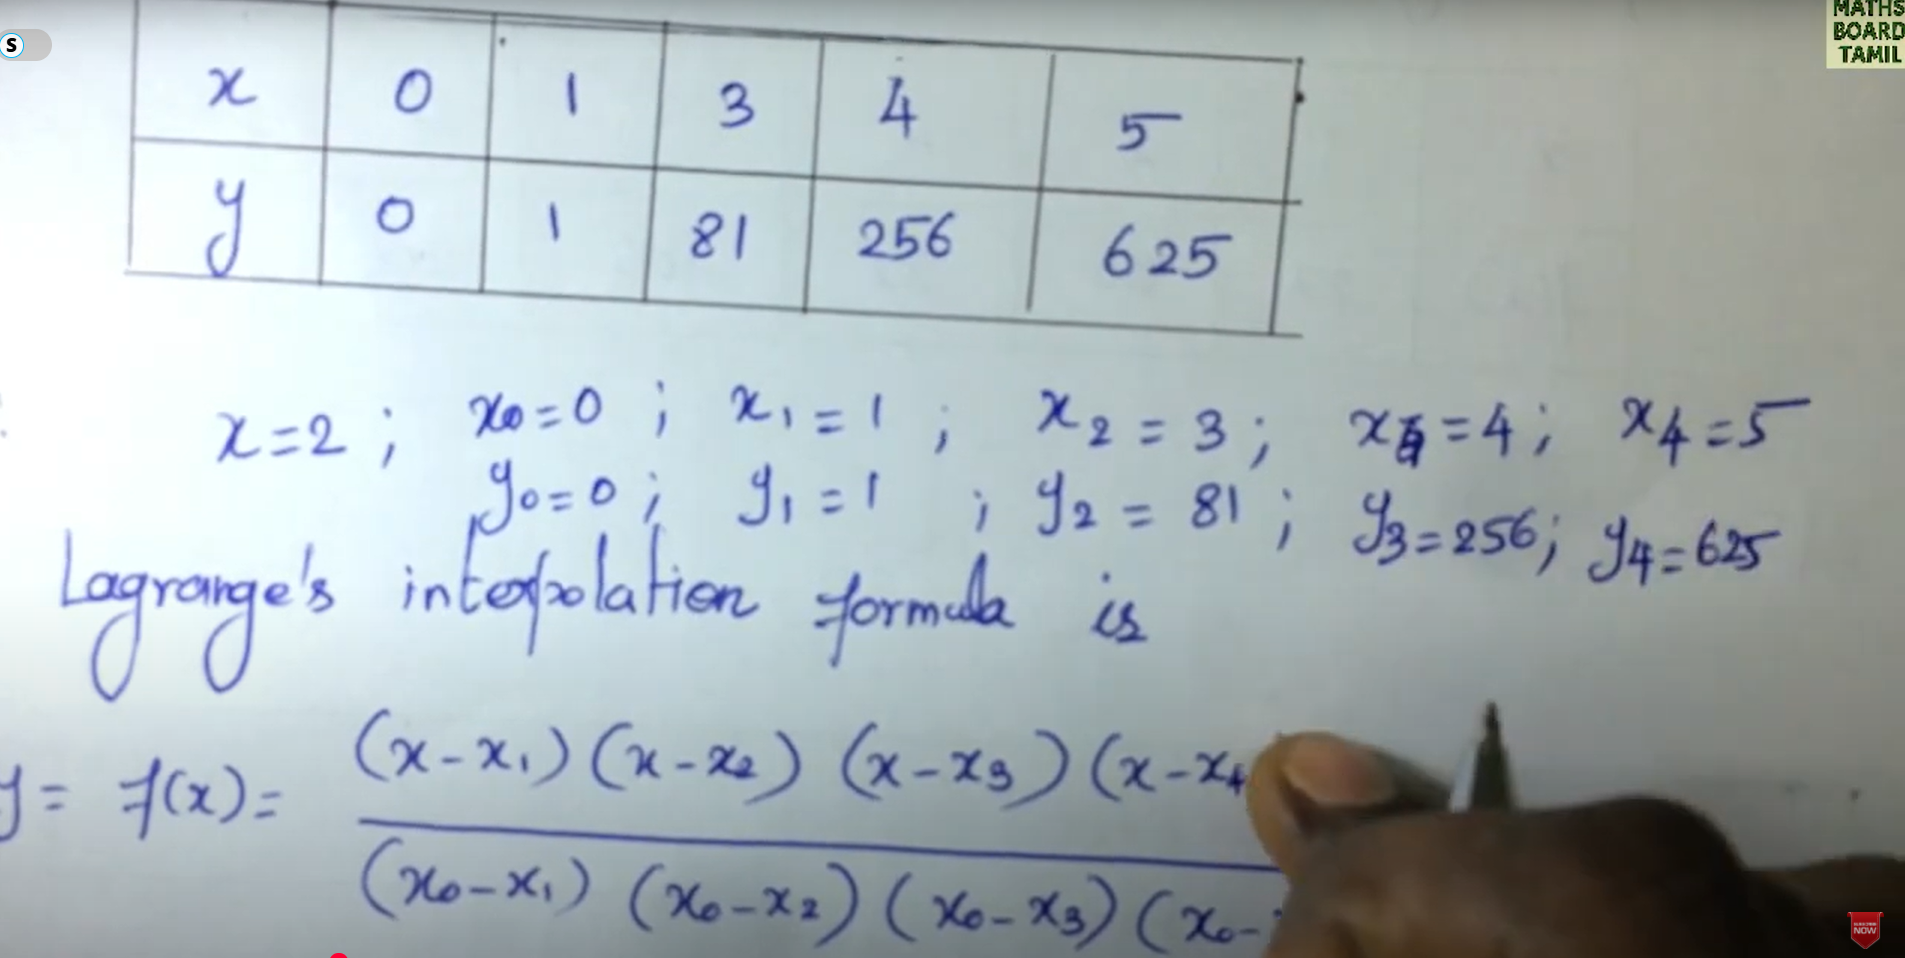 MATHS
BOARD
TAMIL
S
x 0 1 3 4 5
y 0 1 81 256 625
x=2 ; x₀=0 ; x₁=1 ; x₂=3 ; x₃=4 ; x₄=5
y₀=0 ; y₁=1 ; y₂=81 ; y₃=256 ; y₄=625
Lagrange's interpolation formula is
y = f(x) = (x-x₁) (x-x₂) (x-x₃) (x-x₄
(x₀-x₁) (x₀-x₂) (x₀-x₃) (x₀-
SUBSCRIBE
NOW